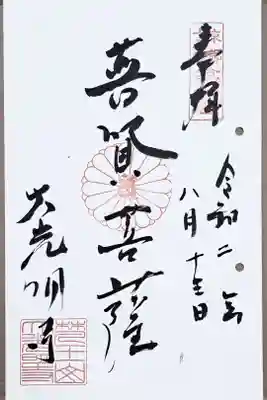 奉拝
令和二年
八月十三日
普賢菩薩
大光明寺